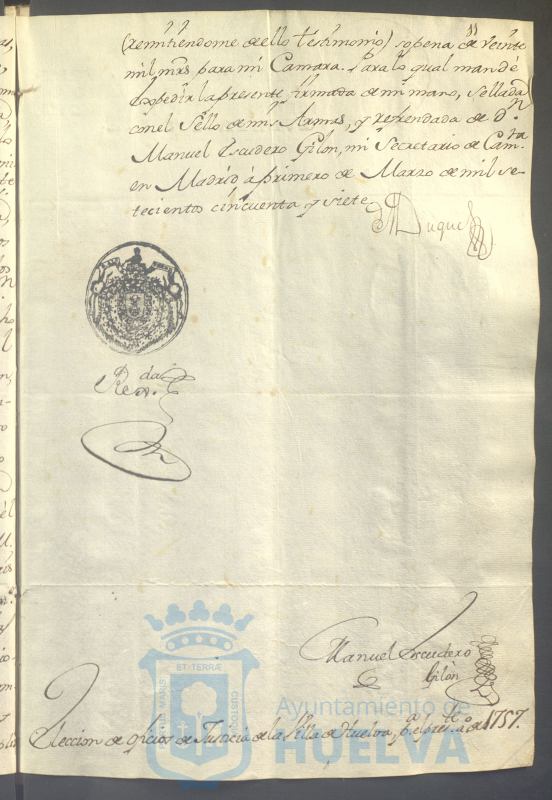 (remitiendome de ello testimonio) sopena de veinte
mil mrs para mi Camara. Para lo qual mandé
expedir la presente firmada de mi mano, sellada
con el Sello de mis Armas, y refrendada de Dn
Manuel Escudero Gilón, mi Secretario de Camra
en Madrid à primero de Marzo de mil se-
tecientos cincuenta y siete
El Duque
Rexda
Manuel Escudero
Gilón
Eleccion de oficios de Justicia de la Villa de Huelva, pa el preste año de 1757.
ET TERRÆ
Ayuntamiento de
HUELVA